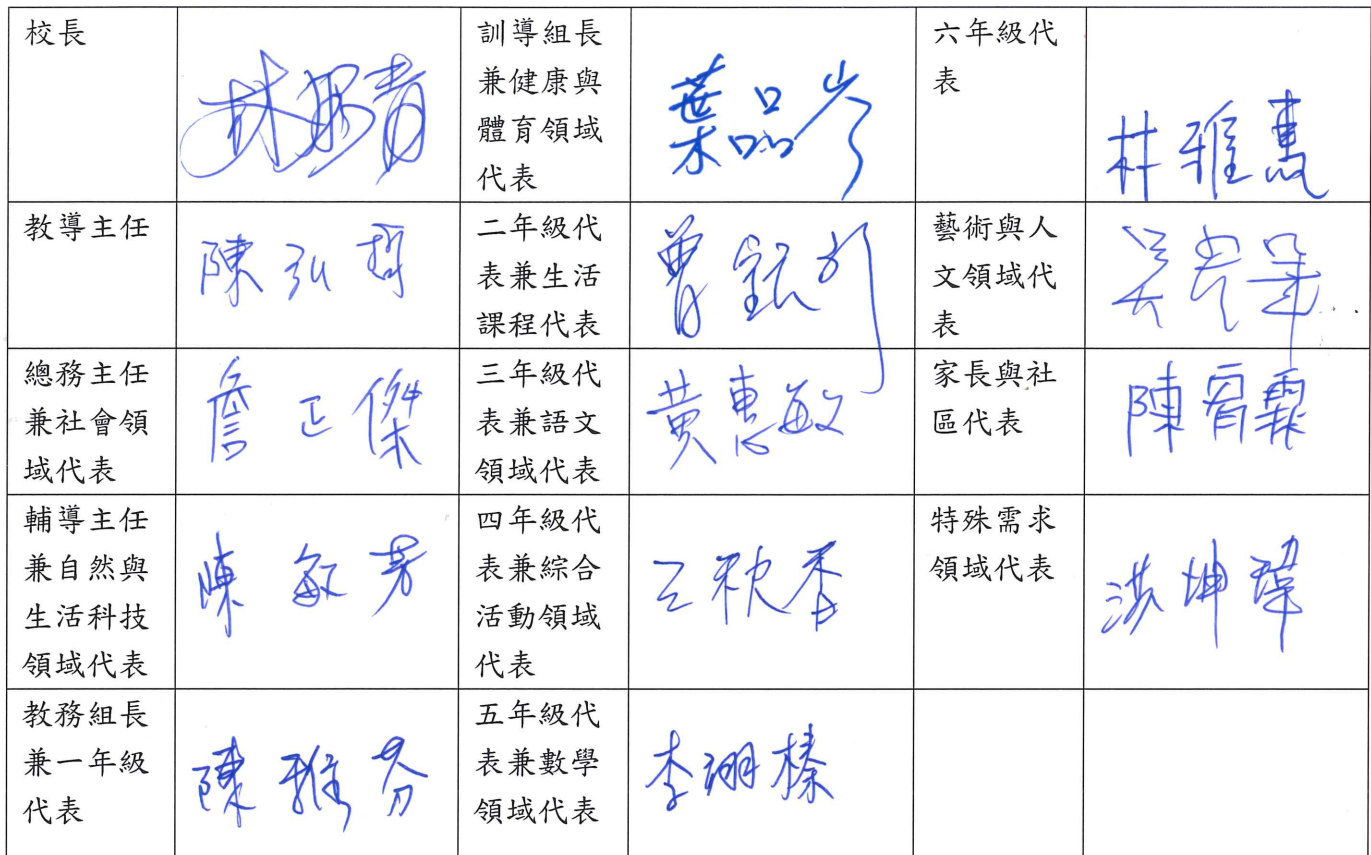 校長
林
訓導組長
兼健康與
體育領域
代表
葉品岑
六年級代
表
林雅惠
教導主任
陳弘哲
二年級代
表兼生活
課程代表
曾
藝術與人
文領域代
表
吳
總務主任
兼社會領
域代表
詹正傑
三年級代
表兼語文
領域代表
黃惠敏
家長與社
區代表
陳宥霖
輔導主任
兼自然與
生活科技
領域代表
陳敏芳
四年級代
表兼綜合
活動領域
代表
王秋香
特殊需求
領域代表
洪坤瑋
教務組長
兼一年級
代表
陳雅芬
五年級代
表兼數學
領域代表
李翊榛